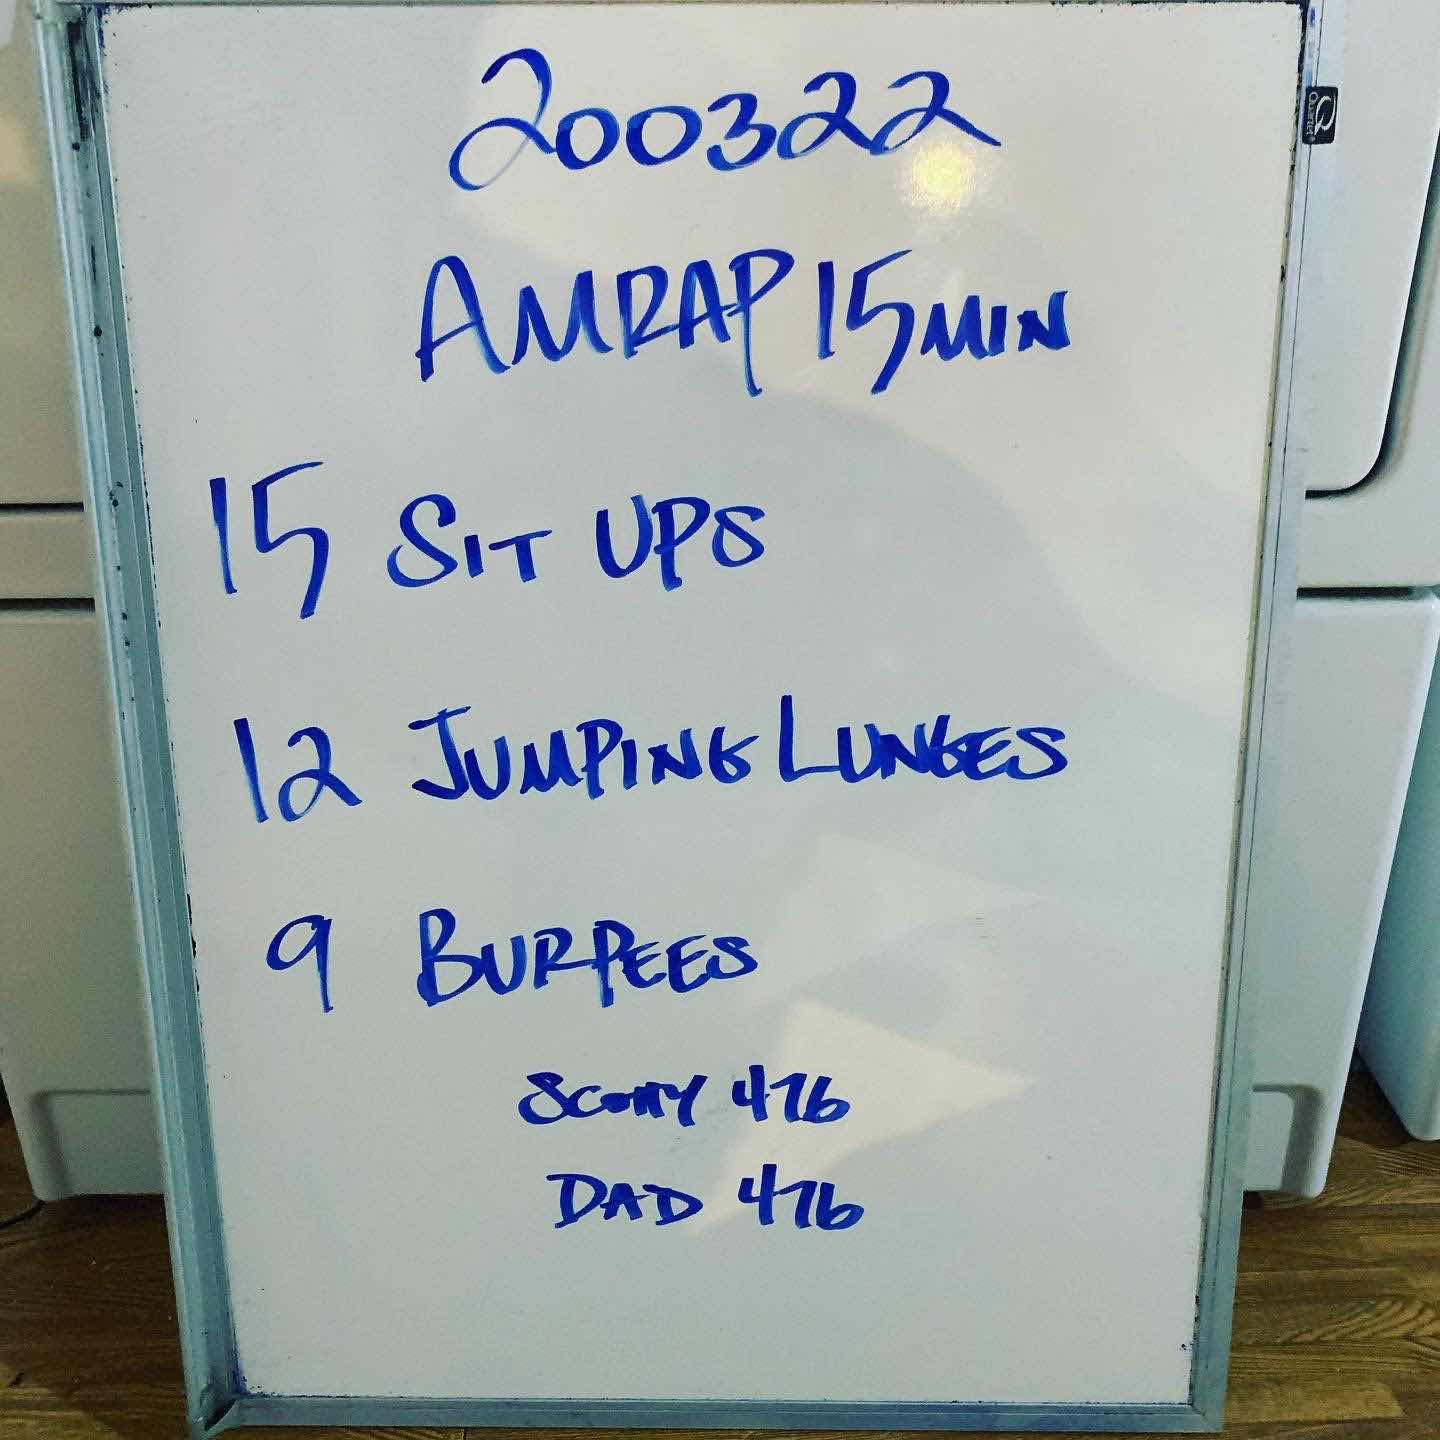 200322
AMRAP 15 MIN
15 SIT UPS
12 JUMPING LUNGES
9 BURPEES
SCOTTY 476
DAD 476
Quartet